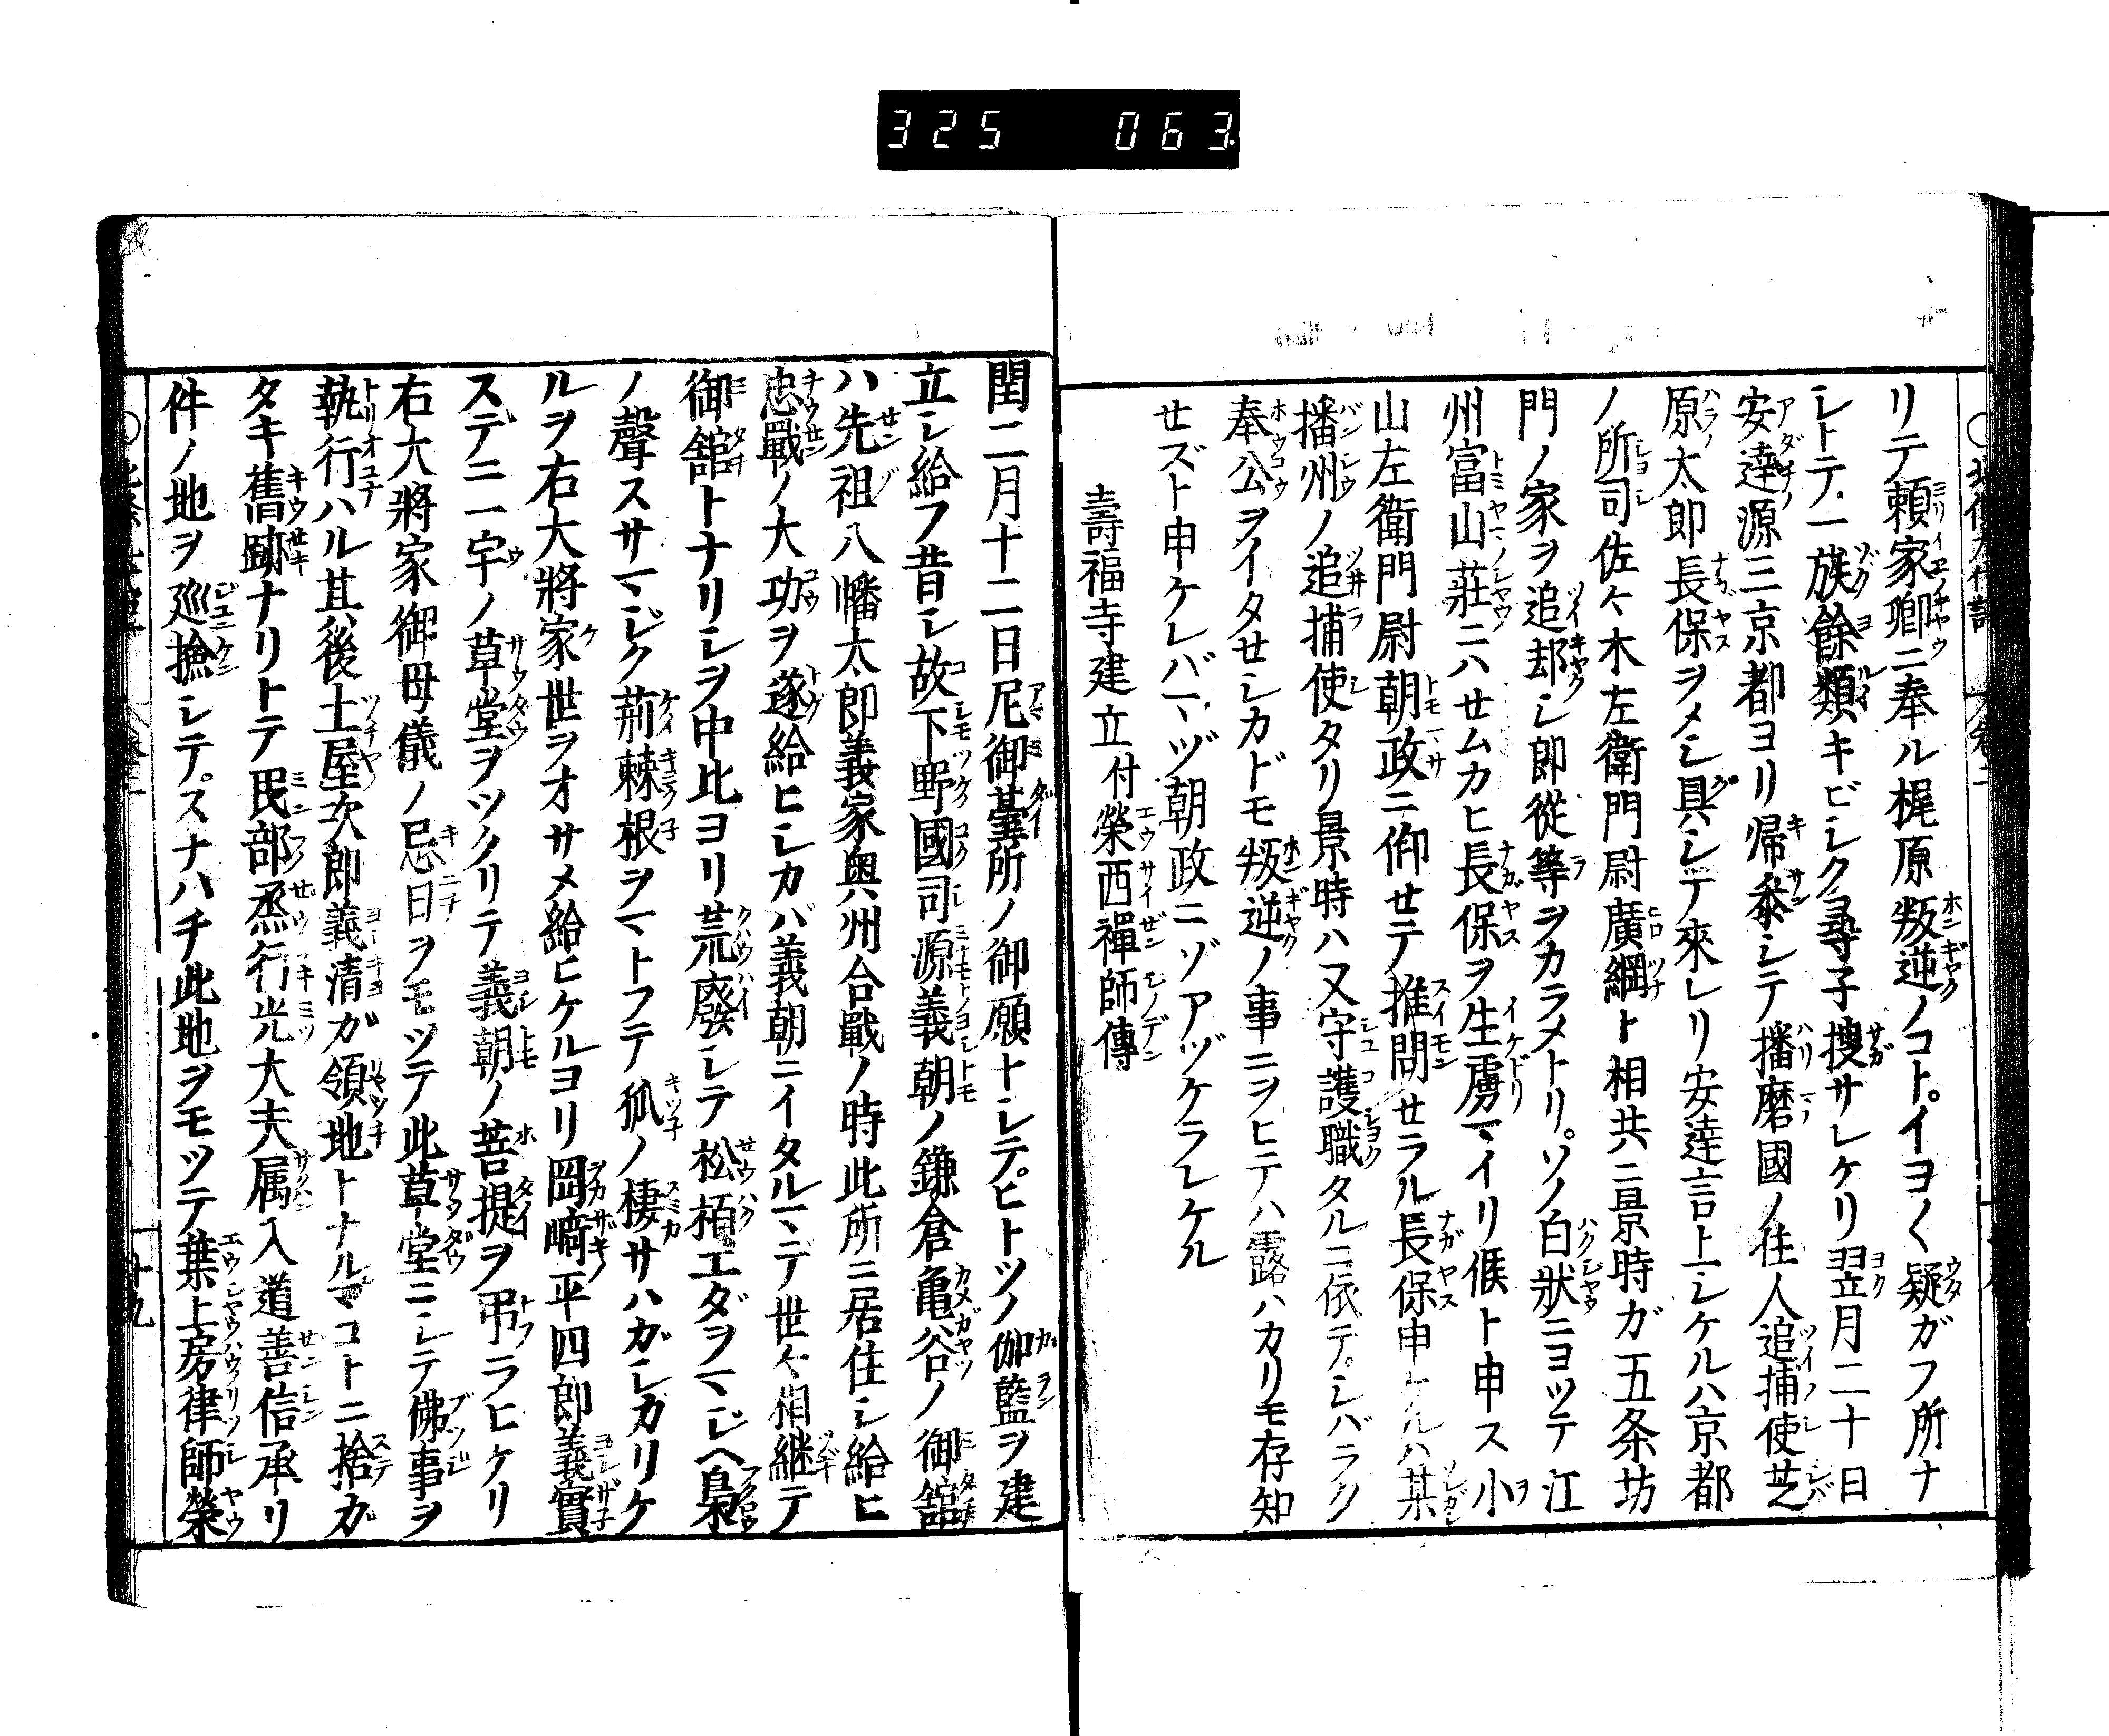 325 063
リテ頼家卿ニ奉ル梶原叛逆ノコト。イヨ〱疑ガフ所ナ
シトテ一族餘類キビシク尋子捜サレケリ翌月二十日
安達源三京都ヨリ帰参シテ播磨國ノ住人追捕使芝
原太郎長保ヲメシ具シテ來レリ安達言上シケルハ京都
ノ所司佐々木左衛門尉廣綱ト相共ニ景時ガ五条坊
門ノ家ヲ追却シ郎從等ヲカラメトリ。ソノ白狀ニヨツテ江
州富山莊ニハせムカヒ長保ヲ生虜マイリ候ト申ス小
山左衛門尉朝政ニ仰せテ推問せラル長保申ケルハ某
播州ノ追捕使タリ景時ハ又守護職タルニ依テ。シバラク
奉公ヲイタせシカドモ叛逆ノ事ニヲヒテハ露ハカリモ存知
せズト申ケレバマヅ朝政ニゾアヅケラレケル
壽福寺建立付榮西禪師傳
閏二月十二日尼御臺所ノ御願トシテ。ヒトツノ伽藍ヲ建
立シ給フ昔シ故下野國司源義朝ノ鎌倉亀谷ノ御舘
ハ先祖八幡太郎義家奥州合戰ノ時此所ニ居住シ給ヒ
忠戰ノ大功ヲ遂給ヒシカバ義朝ニイタルマデ世々相継テ
御舘トナリシヲ中比ヨリ荒廢シテ松栢エダヲマジヘ梟
ノ聲スサマジク荊棘根ヲマトフテ狐ノ棲サハガシカリケ
ルヲ右大將家世ヲオサメ給ヒケルヨリ岡﨑平四郎義實
スデニ一宇ノ草堂ヲツクリテ義朝ノ菩提ヲ弔ラヒケリ
右大將家御母儀ノ忌日ヲモツテ此草堂ニシテ佛事ヲ
執行ハル其後土屋次郎義清ガ領地トナルマコトニ捨ガ
タキ舊跡ナリトテ民部烝行光大夫属入道善信承リ
件ノ地ヲ巡撿シテ。スナハチ此地ヲモツテ葉上房律師榮